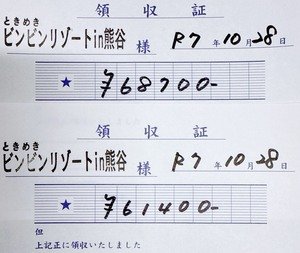 領収証
ときめき
ビンビンリゾートin熊谷 様 R7年10月28日
★ ¥68700-
領収証
ときめき
ビンビンリゾートin熊谷 様 R7年10月28日
★ ¥61400-
但
上記正に領収いたしました